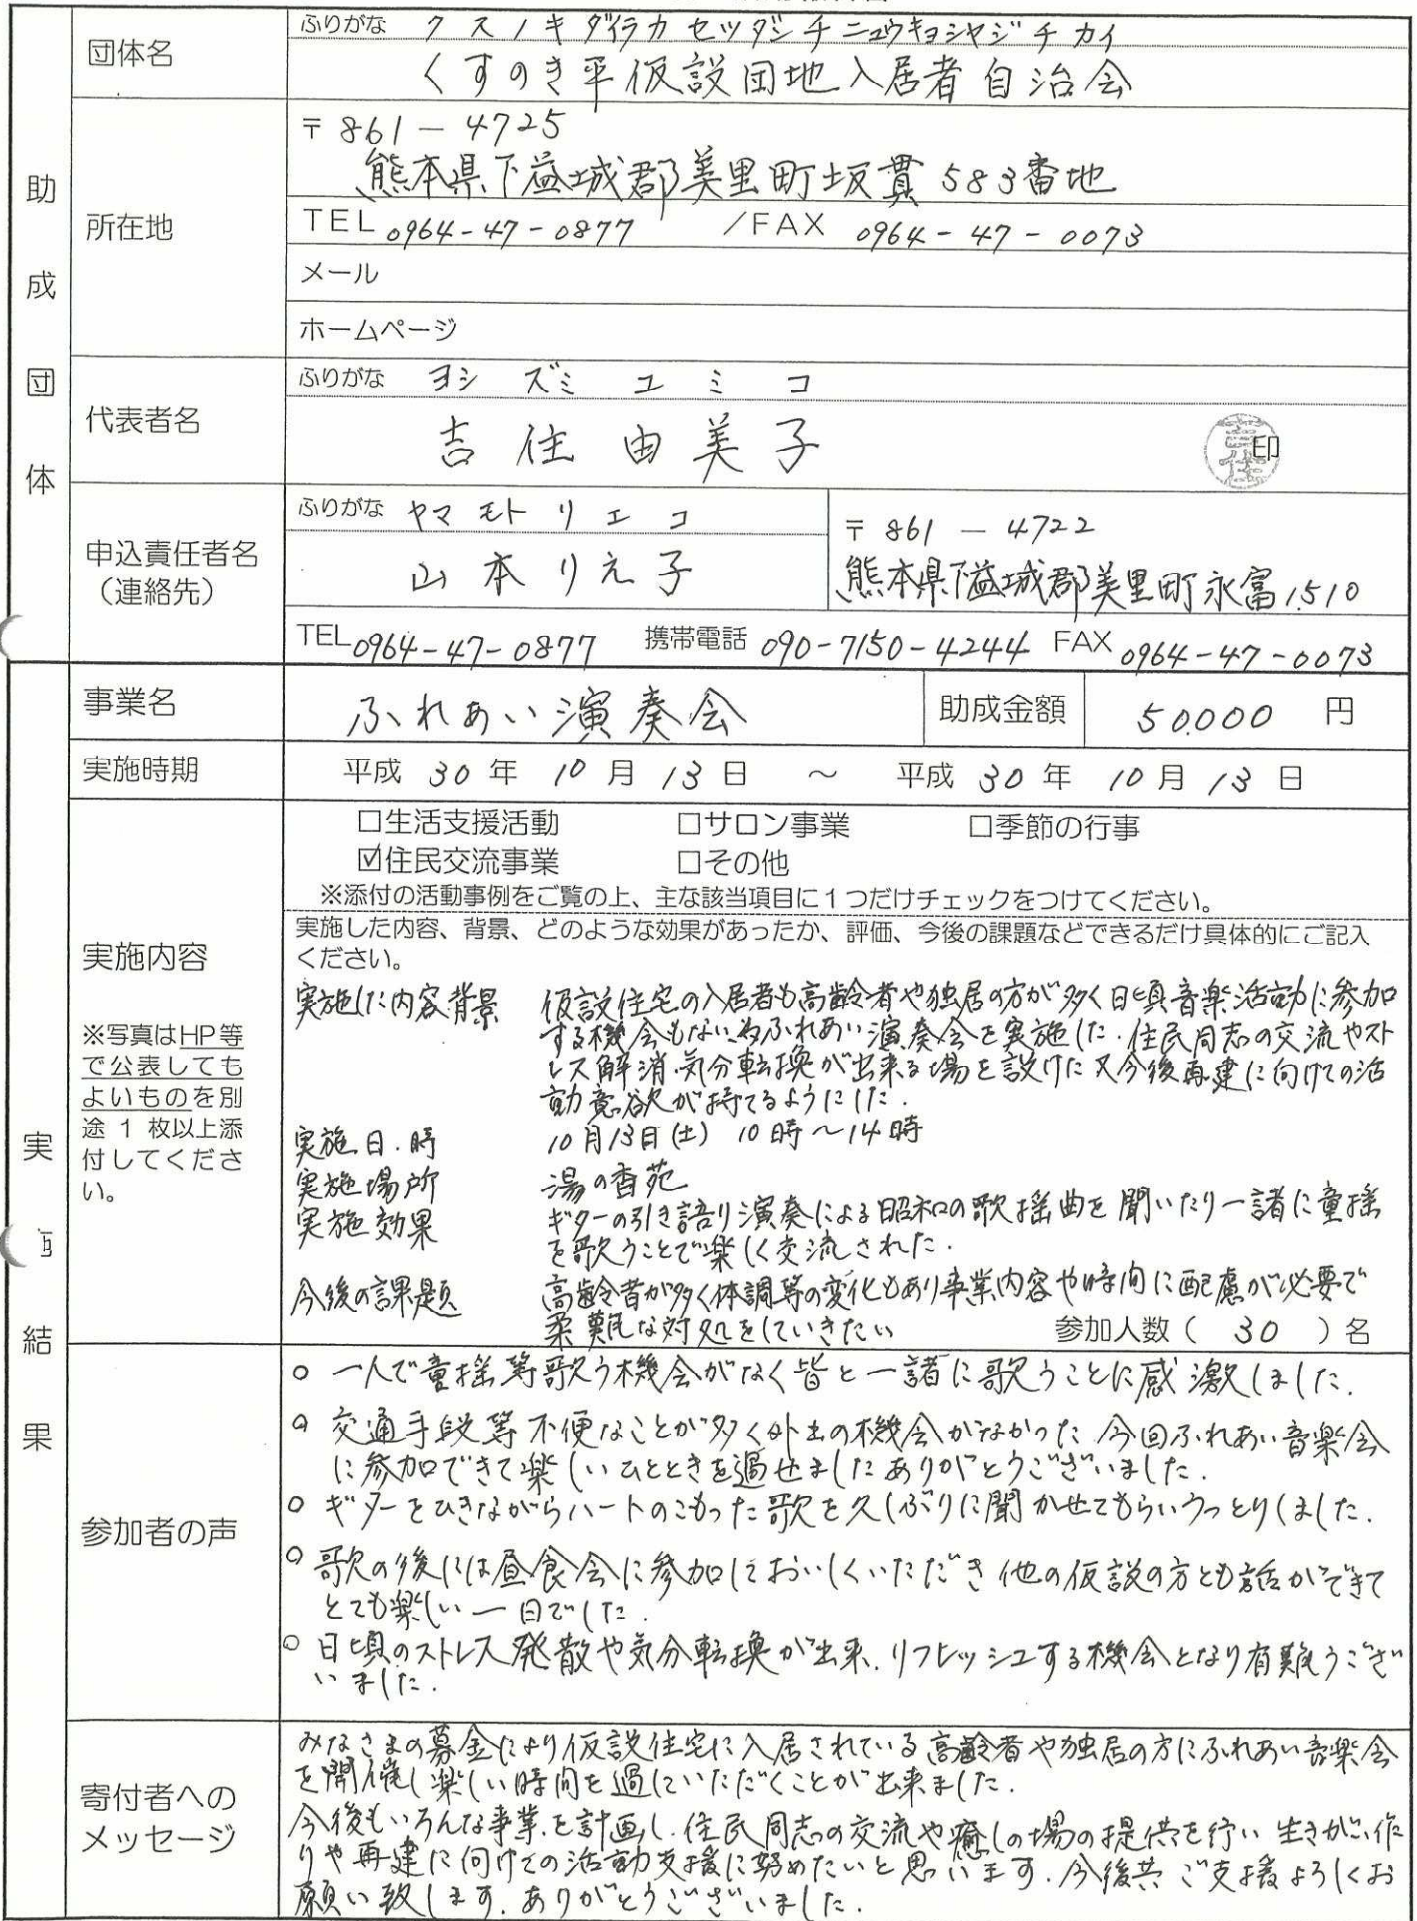 助成団体
団体名
ふりがな クスノキダイラカセツダンチニュウキョシャジチカイ
くすのき平仮設団地入居者自治会
所在地
〒861-4725
熊本県下益城郡美里町坂貫583番地
TEL 0964-47-0877 /FAX 0964-47-0073
メール
ホームページ
代表者名
ふりがな ヨシズミ ユミコ
吉住由美子
印
申込責任者名
（連絡先）
ふりがな ヤマモトリエコ
山本りえ子
〒861-4722
熊本県下益城郡美里町永富1510
TEL 0964-47-0877 携帯電話 090-7150-4244 FAX 0964-47-0073
実結果
事業名
ふれあい演奏会
助成金額 50.000 円
実施時期
平成30年10月13日 ～ 平成30年10月13日
実施内容
※写真はHP等
で公表しても
よいものを別
途1枚以上添
付してくださ
い。
□生活支援活動 □サロン事業 □季節の行事
☑住民交流事業 □その他
※添付の活動事例をご覧の上、主な該当項目に1つだけチェックをつけてください。
実施した内容、背景、どのような効果があったか、評価、今後の課題などできるだけ具体的にご記入
ください。
実施した内容.背景 仮設住宅の入居者も高齢者や独居の方が多く日頃音楽活動に参加
する機会もない為ふれあい演奏会を実施した.住民同志の交流やスト
レス解消.気分転換が出来る場を設けた又今後再建に向けての活
動意欲が持てるようにした.
実施日.時 10月13日(土) 10時～14時
実施場所 湯の香苑
実施効果 ギターの引き語り演奏による昭和の歌揺曲を聞いたり一諸に童揺
を歌うことで楽しく交流された.
今後の課題 高齢者が多く体調等の変化もあり事業内容や時間に配慮が必要で
柔難な対処をしていきたい
参加人数（ 30 ）名
参加者の声
○ 一人で童揺等歌う機会がなく皆と一諸に歌うことに感激しました.
○ 交通手段等不便なことが多く外出の機会がなかった 今回ふれあい音楽会
に参加できて楽しいひとときを過せましたありがとうございました.
○ ギターをひきながらハートのこもった歌を久しぶりに聞かせてもらいうっとりしました.
○ 歌の後には昼食会に参加しておいしくいただき他の仮設の方とも話ができて
とても楽しい一日でした.
○ 日頃のストレス発散や気分転換が出来.リフレッシュする機会となり有難うござ
いました.
寄付者への
メッセージ
みなさまの募金により仮設住宅に入居されている高齢者や独居の方にふれあい音楽会
を開催し楽しい時間を過していただくことが出来ました.
今後もいろんな事業を計画し.住民同志の交流や癒しの場の提供を行い生きがい作
りや再建に向けての活動支援に努めたいと思います.今後共ご支援よろしくお
願い致します.ありがとうございました.